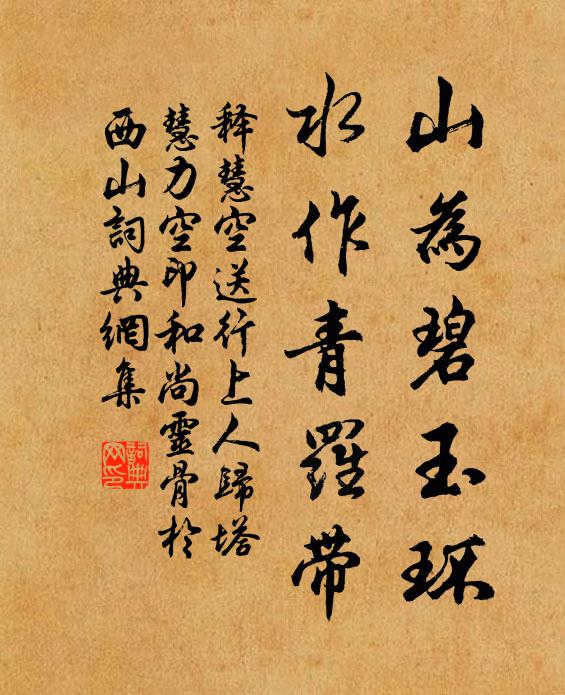 山為碧玉环
水作青羅帶
释慧空送行上人歸塔
慧力空印和尚靈骨於
西山詞典網集
詞典网印